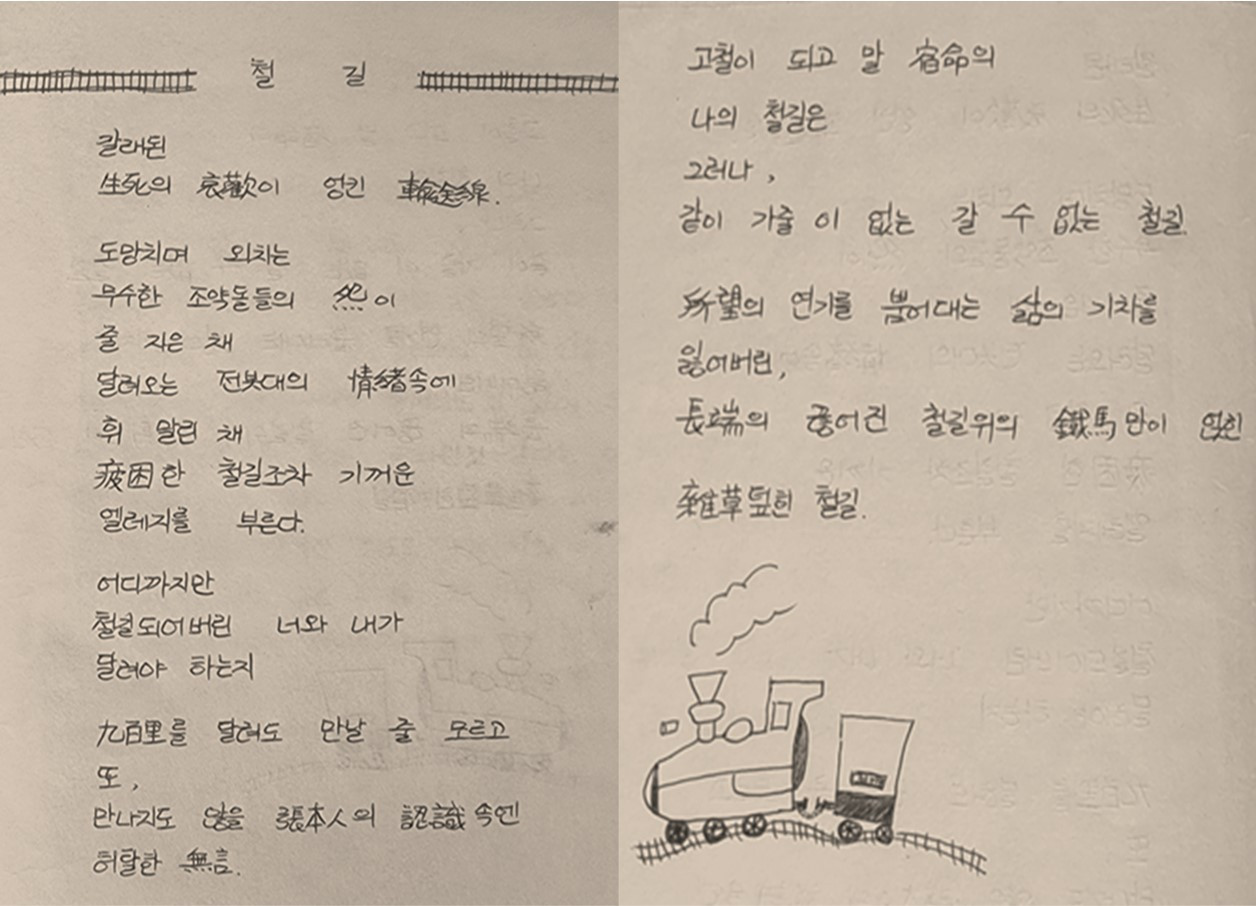 철 길
갈래된
生死의 哀歡이 엉킨 輸送線.
도망치며 외치는
무수한 조약돌들의 怨이
줄 지은 채
달려오는 전봇대의 情緖속에
휘 말린 채
疲困한 철길조차 기꺼운
엘레지를 부른다.
어디까지만
철길되어버린 너와 내가
달려야 하는지
九百里를 달려도 만날 줄 모르고
또,
만나지도 않을 張本人의 認識 속엔
허탈한 無言.
고철이 되고 말 宿命의
나의 철길은
그러나,
같이 가줄 이 없는 갈 수 없는 철길.
所望의 연기를 뿜어대는 삶의 기차를
잃어버린,
長湍의 끊어진 철길위의 鐵馬만이 얹힌
雜草덮힌 철길.